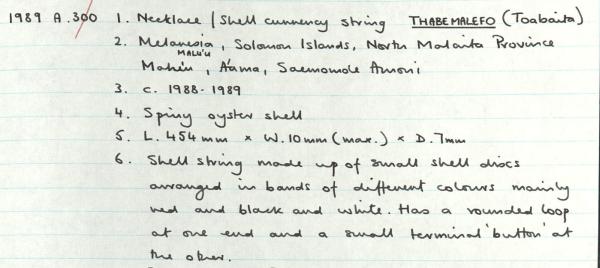 1989 A.300 1. Necklace / Shell currency string THABEMALEFO (Toabaita)
2. Melanesia, Solomon Islands, North Malaita Province
MALU'U
, A'ama,
3. c. 1988-1989
4. Spiny oyster shell
5. L. 454mm × W. 10mm (max.) × D. 7mm
6. Shell string made up of small shell discs
arranged in bands of different colours mainly
red and black and white. Has a rounded loop
at one end and a small terminal 'button' at
the other.